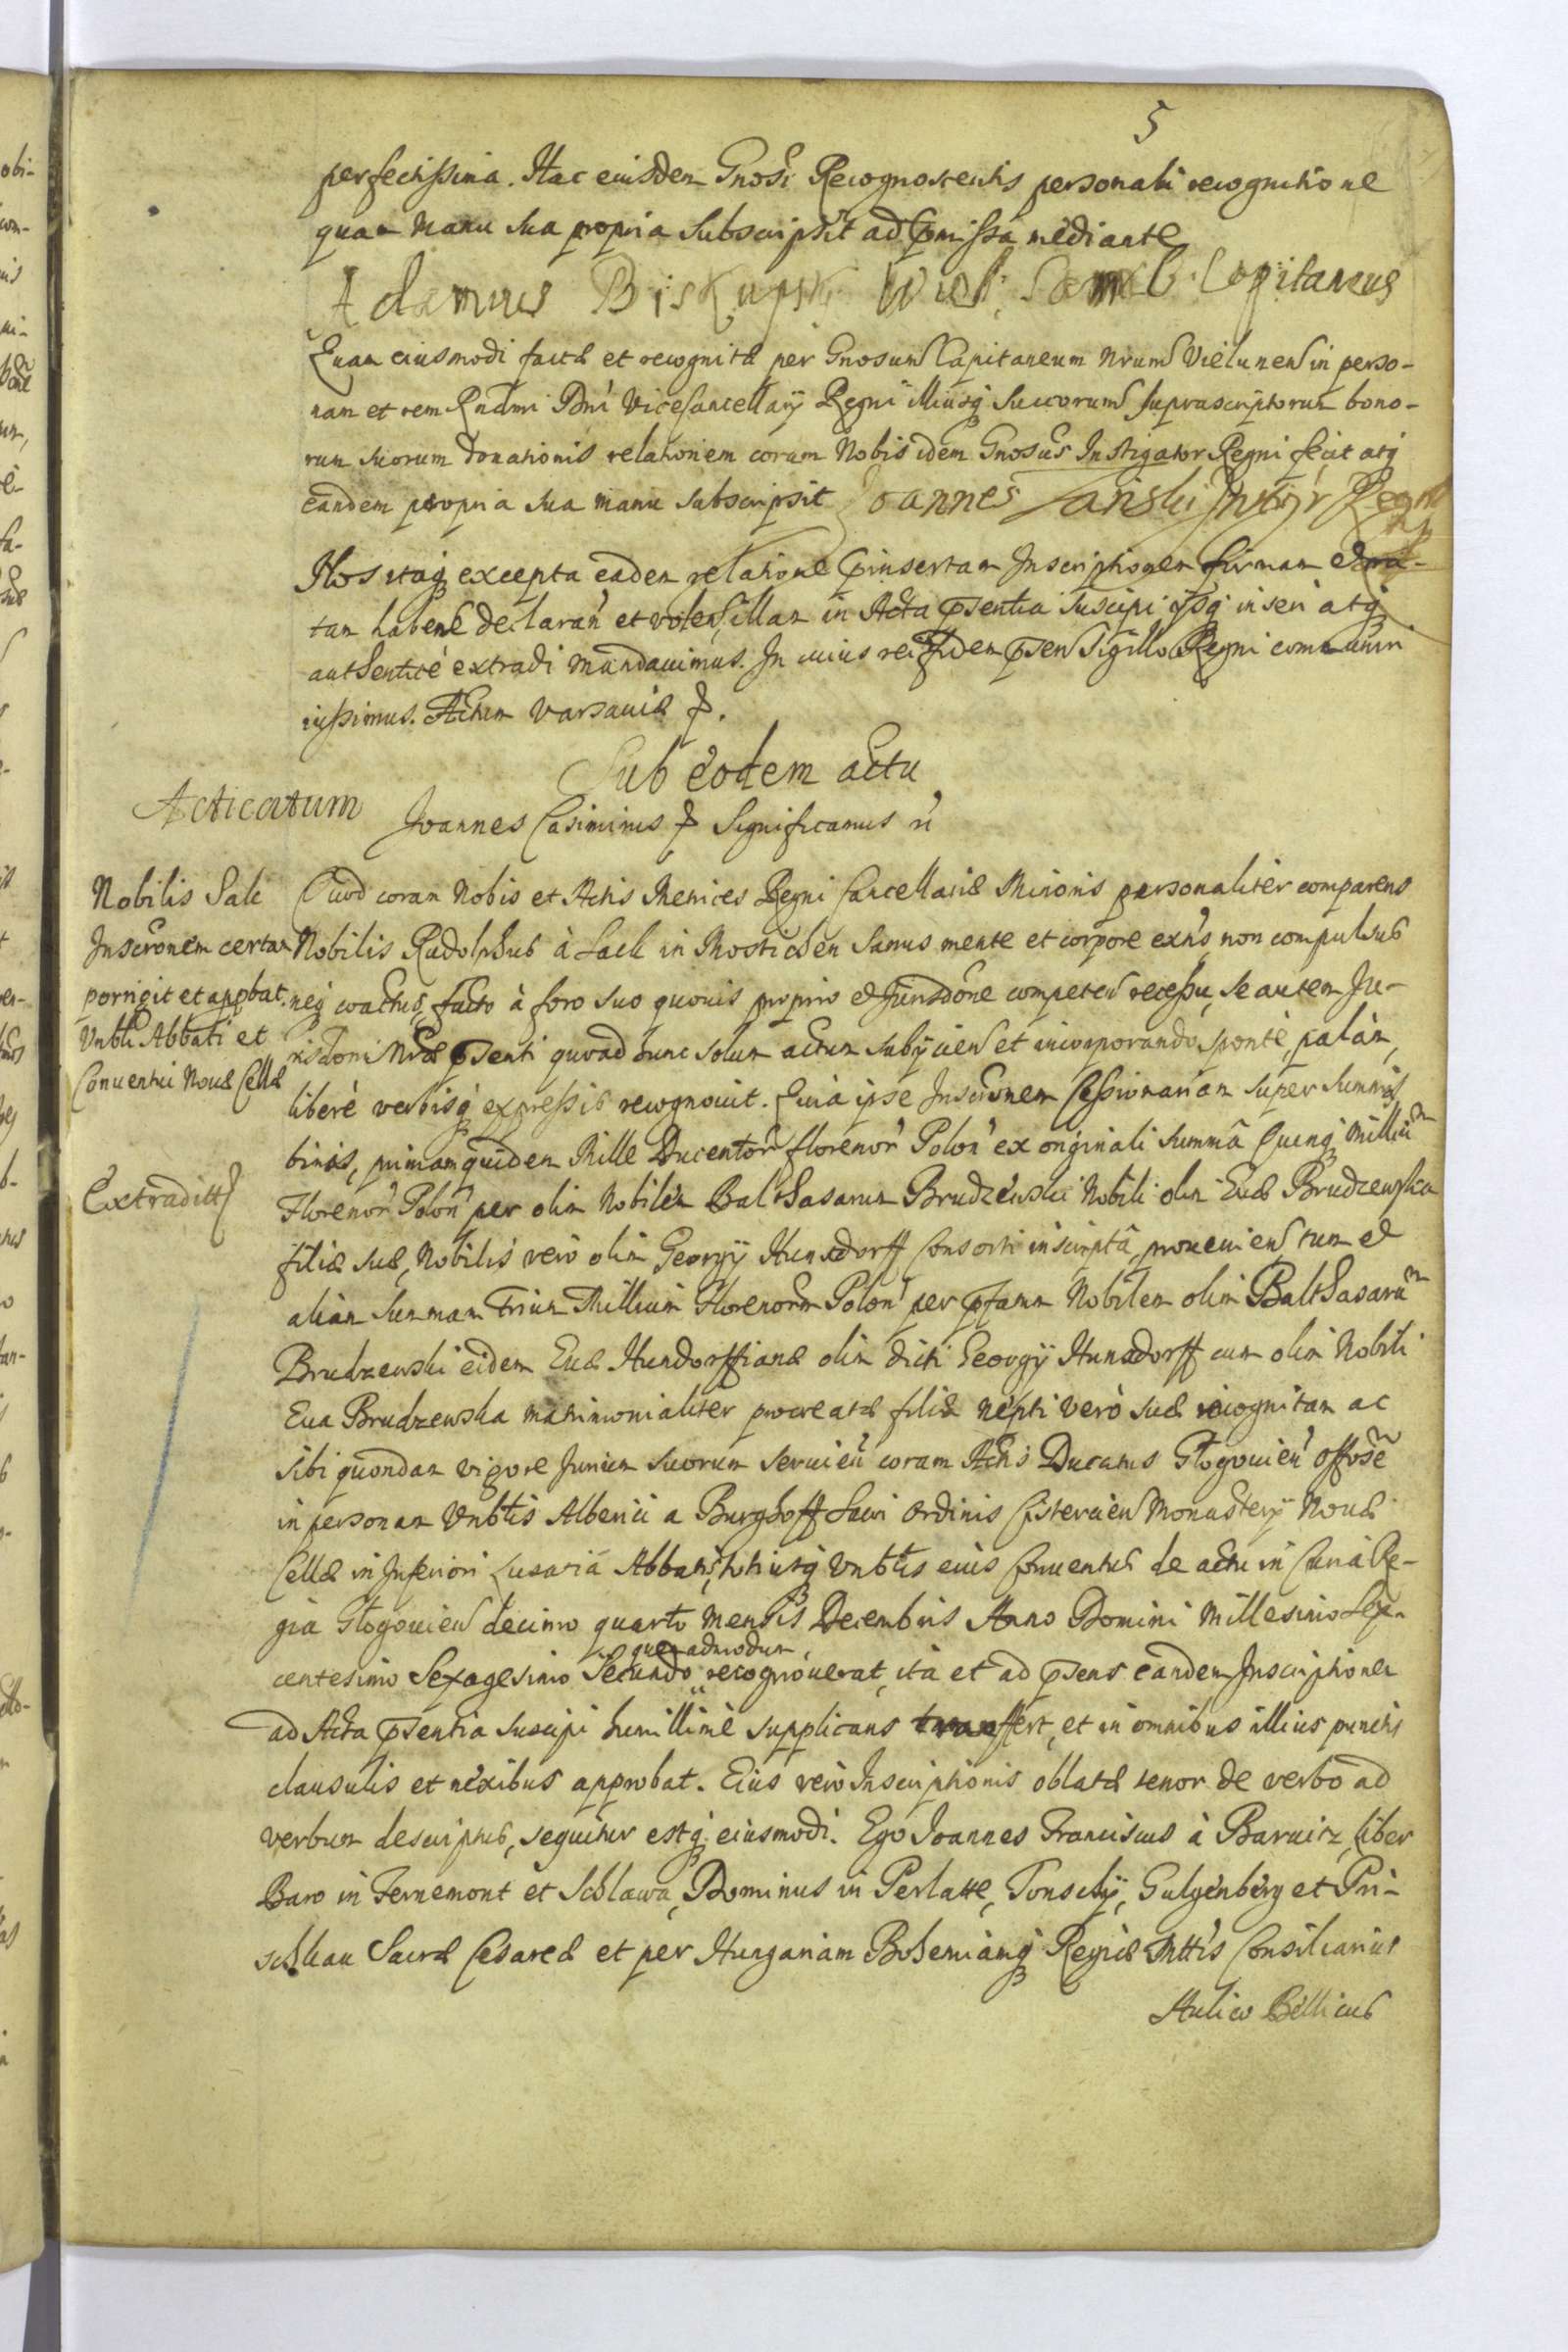 5
perfectissima. Hac eiusdem Gnosi Recognoscentis personali recognitione
quam manu sua propria subscripsit ad pmissa mediante
Adamus Biskupski Capitaneus
Quam eiusmodi factæ et recognitæ per Gnosum Capitaneum nrum Vielunen in perso-
nam et rem Rndmi Dni Vicecancellarij Regni illiusq Succorum suprascriptorum bono-
rum suorum donationis relationem coram Nobis idem Gnosus Instigator Regni fecit atq
eandem propria sua manu subscripsit Joannes Regni
Nos itaq excepta eadem relatione pinsertam Inscriptionem firmam et ra-
tam habere declaran et volen, illam in Acta psentia suscipi ijsq inseri atq
authenticè extradi mandauimus. In cuius rei fidem psen Sigillo Regni communiri
iussimus. Actum Varsauiæ
Sub eodem actu
Acticatum
Joannes Casimirus Significamus
Nobilis Sack
Inscronem certam
porrigit et appbat
Vnbli Abbati et
Conuentui Nouæ Cellæ
Extraditt
Quod coram Nobis et Actis Metrices Regni Cancellariæ Minoris personaliter comparens
Nobilis Radolphus à Sack in Mostichen sanus mente et corpore exns, non compulsus
neq coactus, facto à foro suo quouis proprio et Jurisdone competen recessu, se autem Ju-
risdoni Nræ psenti quoad hunc solum actum subijcien et incorporando, sponte, palàm,
liberè verbisq expressis recognouit. Quia ipse Inscronem Cessionariam super summis
binis, primam quidem Mille Ducentor florenor Polon ex originali summâ Quinq Milliu
Florenor Polon per olim Nobilem Balthasarum Brudzewski Nobili olim Euæ Brudzewska
filiæ suæ, Nobilis verò olim Georgij Hunsdorff Consorti inscriptâ prouenien, tum et
aliam summam Trium Millium Florenorum Polon per pfatum Nobilem olim Balthasaru
Brudzewski eidem Euæ Hundorffianæ olim dicti Georgij Hunsdorff cum olim Nobili
Eua Brudzewska matrimonialiter procreatæ filiæ nepti verò suæ recognitam ac
sibi quondam vigore Jurium suorum seruien coram Actis Ducatus Glogouien
in personam Vnblis Alberici a Burghoff Sacri Ordinis Cistercien Monasterij Nouæ
Cellæ in Inferiori Lusatiâ Abbatis, totiusq Vnblis eius Conuentus de actu in Curia Re-
gia Glogouien decimo quarto Mensis Decembris Anno Domini Millesimo Sex-
centesimo Sexagesimo Secundo quemadmodum recognouerat, ita et ad psens eandem Inscriptionem
ad Acta psentia suscipi humillimè supplicans offert, et in omnibus illius punctis
clausulis et nexibus approbat. Eius verò Inscriptionis oblatæ tenor de verbo ad
verbum descriptus, sequitur estq eiusmodi. Ego Joannes Franciscus à Barwitz, Liber
Baro in Fernemont et Schlawa, Dominus in Perlatte, Tonschij, Gulgenberg et Pri-
schkau Sacræ Cesareæ et per Hungariam Bohemiamq Regiæ Mttis Consiliarius
Aulico Bellicus